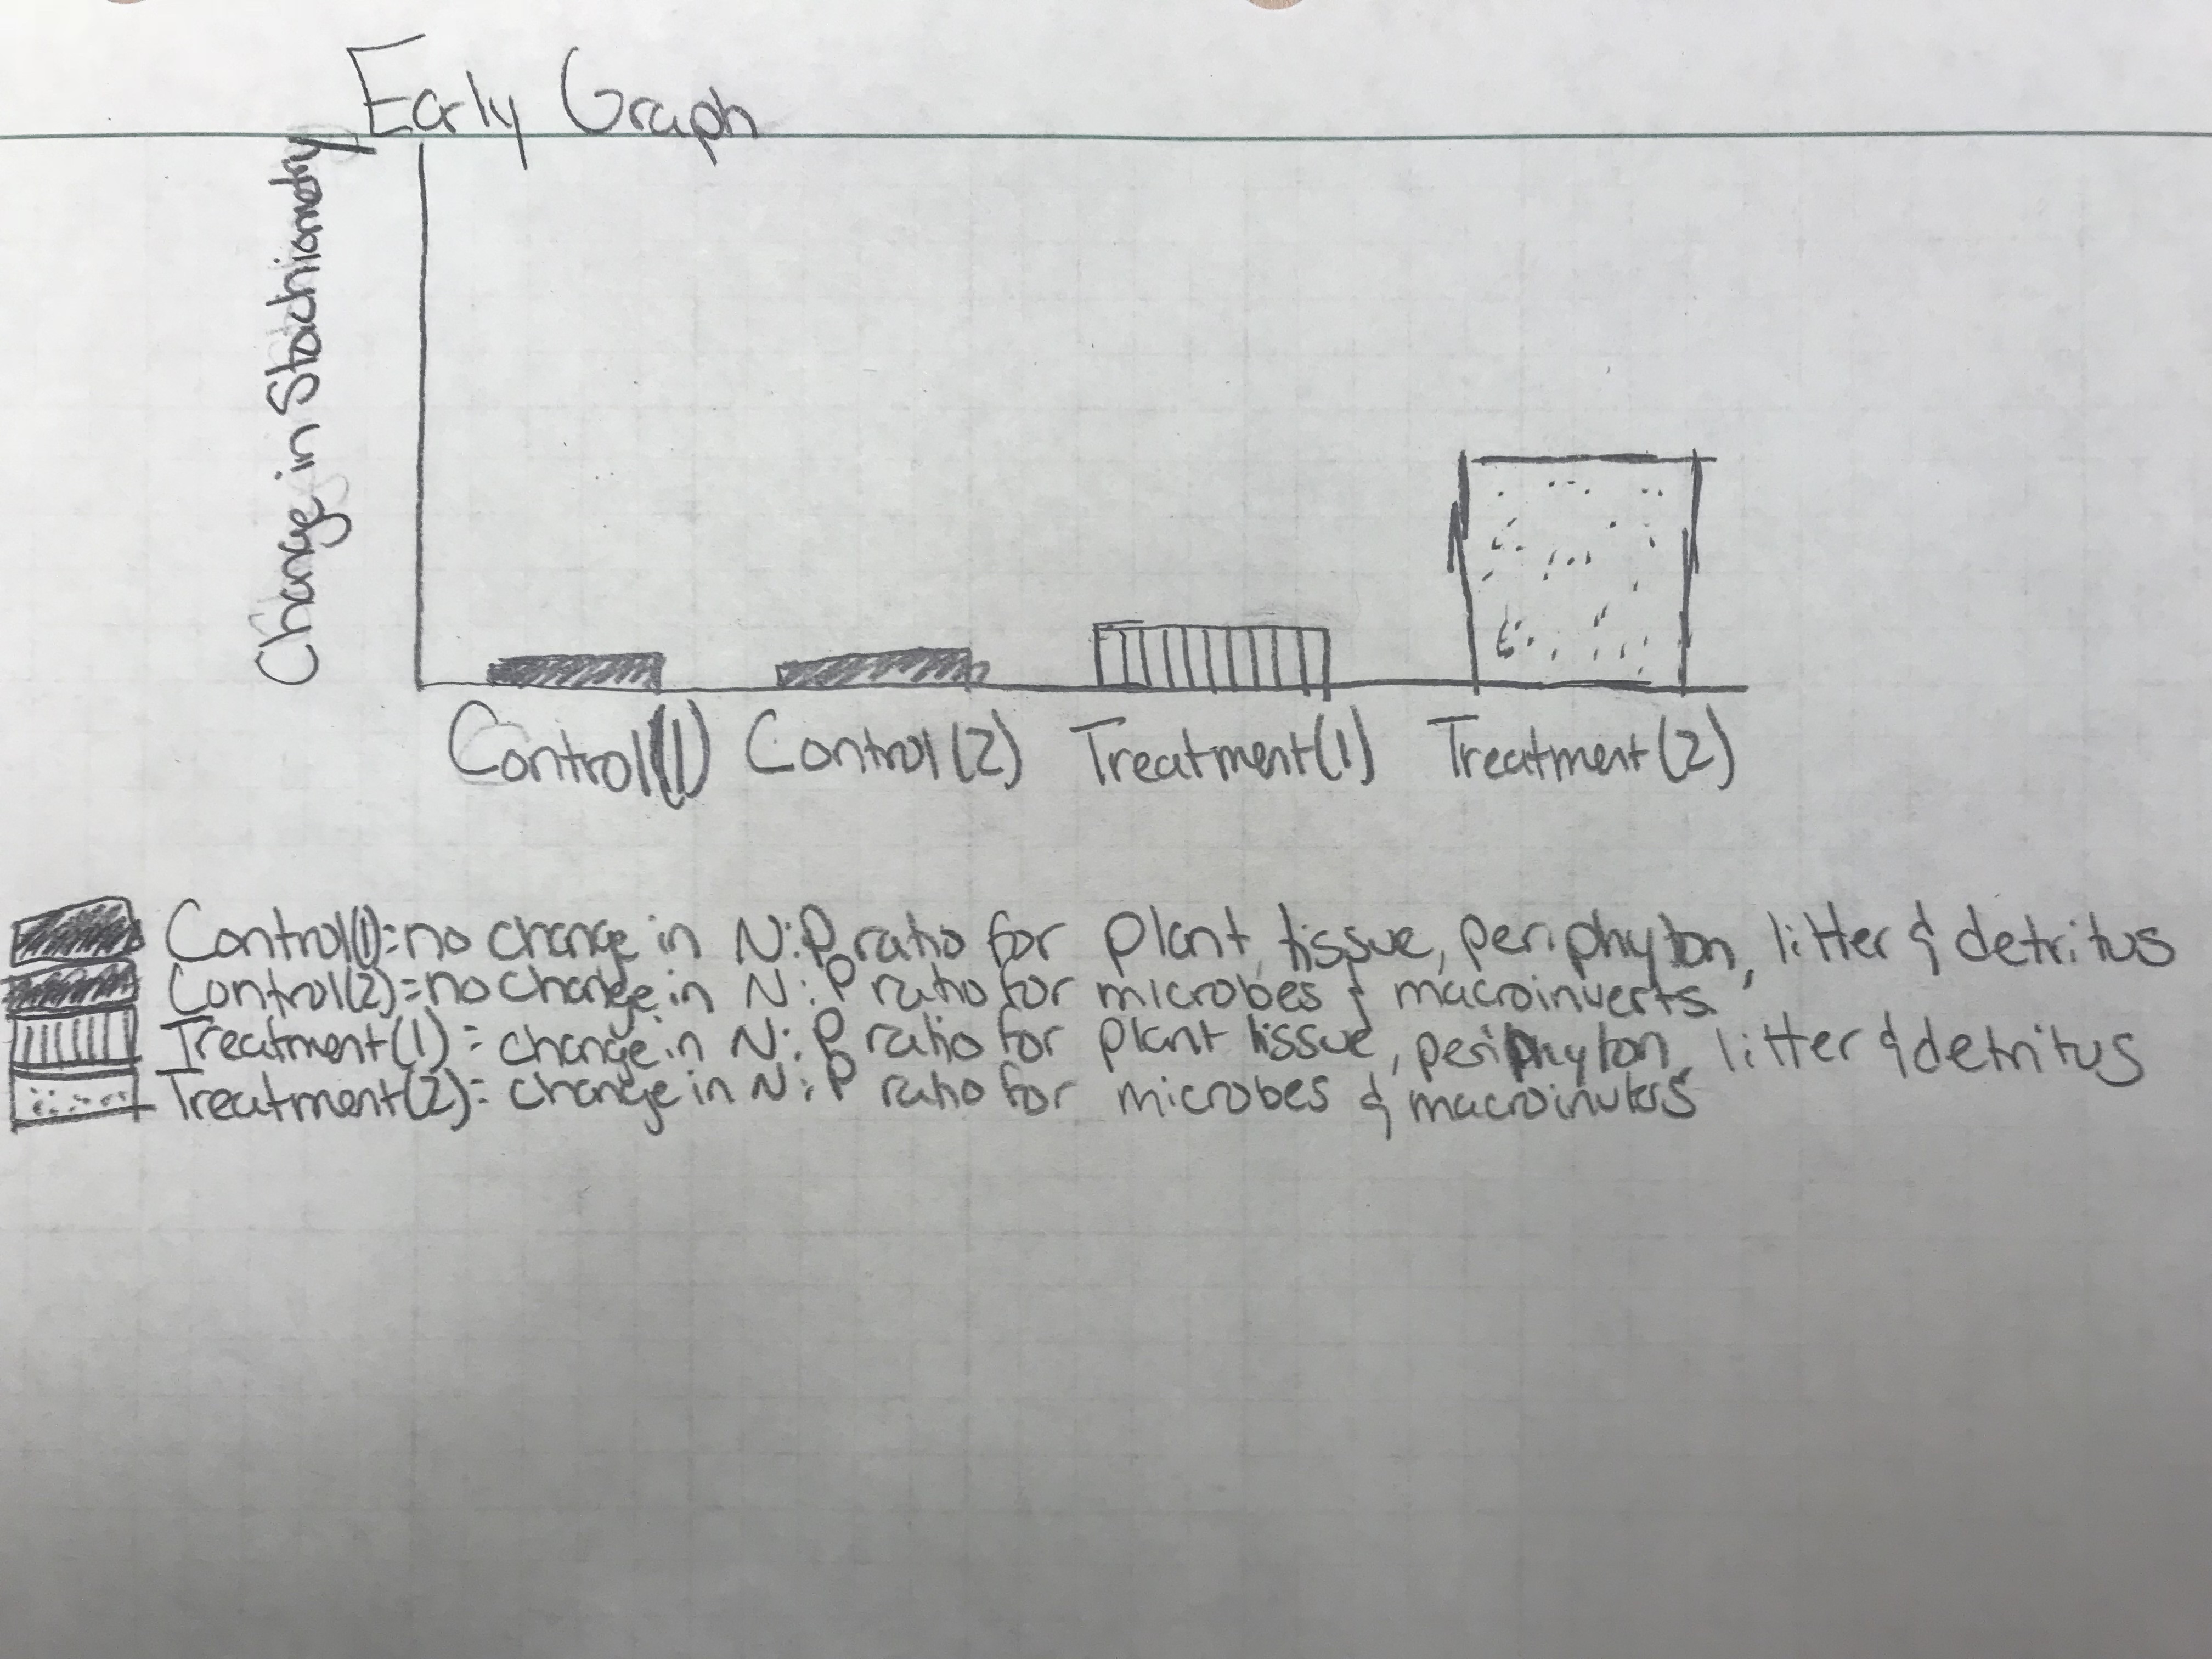 Early Graph
Change in Stoichiometry
Control(1) Control(2) Treatment(1) Treatment(2)
Control(1)=no change in N:P ratio for plant tissue, periphyton, litter & detritus
Control(2)=no change in N:P ratio for microbes & macroinverts
Treatment(1)= change in N:P ratio for plant tissue, periphyton, litter & detritus
Treatment(2)= change in N:P ratio for microbes & macroinverts